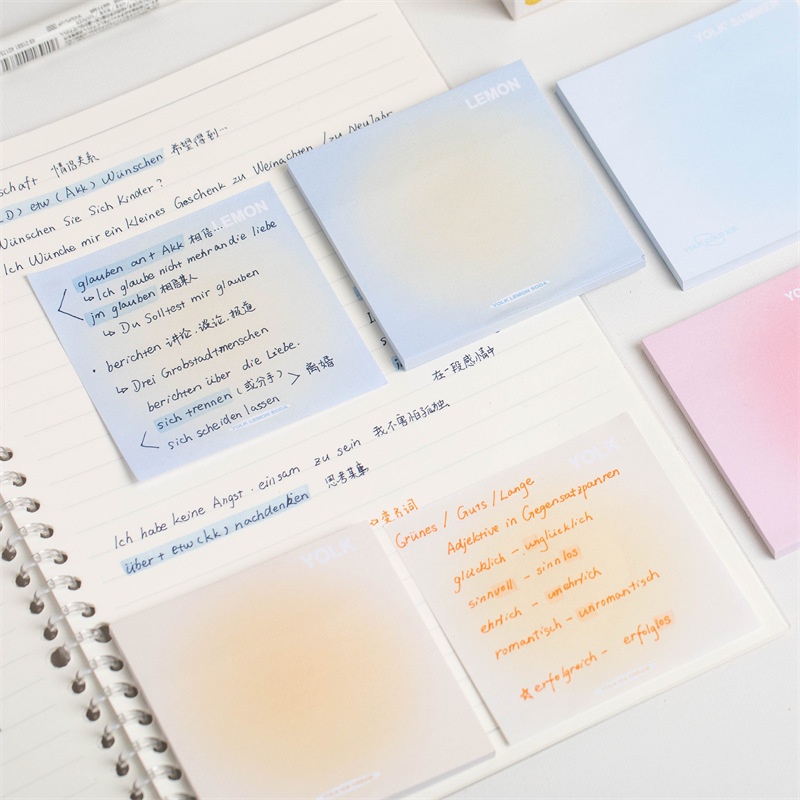 YOLK SUMMER
LEMON
schaft 情侣关系
(D) etw (Akk) Wünschen 希望得到...
Wünschen Sie Sich Kinder?
Ich Wünche mir ein kleines Geschenk zu Weinachten / zu Neujahr
LEMON
glauben an + Akk 相信...
↳ Ich glaube nicht mehr an die liebe
jm glauben 相信某人
↳ Du Solltest mir glauben
• berichten 讲论.谈论.报道
↳ Drei Grobstadtmenschen
berichten über die Liebe.
sich trennen (或分手) > 离婚
sich scheiden lassen
YOLK LEMON SODA
YOLK LEMON SODA
在一段感情中
Ich habe keine Angst. einsam zu sein 我不害怕孤独
über + etw (kk) nachdenken 思考某事
YOLK
YOLK
Grünes / Guts / Lange
Adjektive in Gegensatzpanren
glücklich - unglücklich
sinnvoll - sinnlos
ehrlich - unehrlich
romantisch - unromantisch
☆ erfolgreich - erfolglos
YO